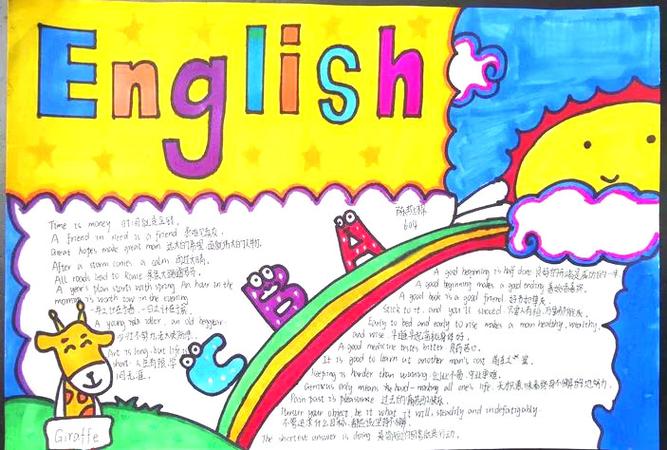 English
Time is money 时间就是金钱.
A friend in need is a friend 患难见真友.
Great hopes make great man 远大的希望 造就伟大的人物.
After a storm comes a calm 雨过天晴.
All roads lead to Rome 条条大路通罗马.
A year's plan starts with spring An hour in the
morning is worth tow in the evening
一年之计在于春, 一日之计在于晨.
A young idler, an old beggar.
Art is long, but life is
short 人生有限 学
问无涯.
Giraffe
604
A
B
C
A good beginning is half done
A good beginning makes a good ending 善始者善终.
A good book is a good friend 好书如挚友.
Stick to it, and you'll succeed
Early to bed and early to rise makes a man healthy, wealthy,
and wise 早睡早起
A good medicine tastes bitter 良药苦口.
It is good to learn at another man's cost
keeping is harder than winning 创业不易, 守业更难.
Genius only means hard-working all one's life
Pain past is pleasure 过去的痛苦即快乐.
Pursue your object, be it what it will, steadily and indefatigably.
不管追求什么目标, 都应坚持不懈.
The shortest answer is doing 最简短的回答就是行动.